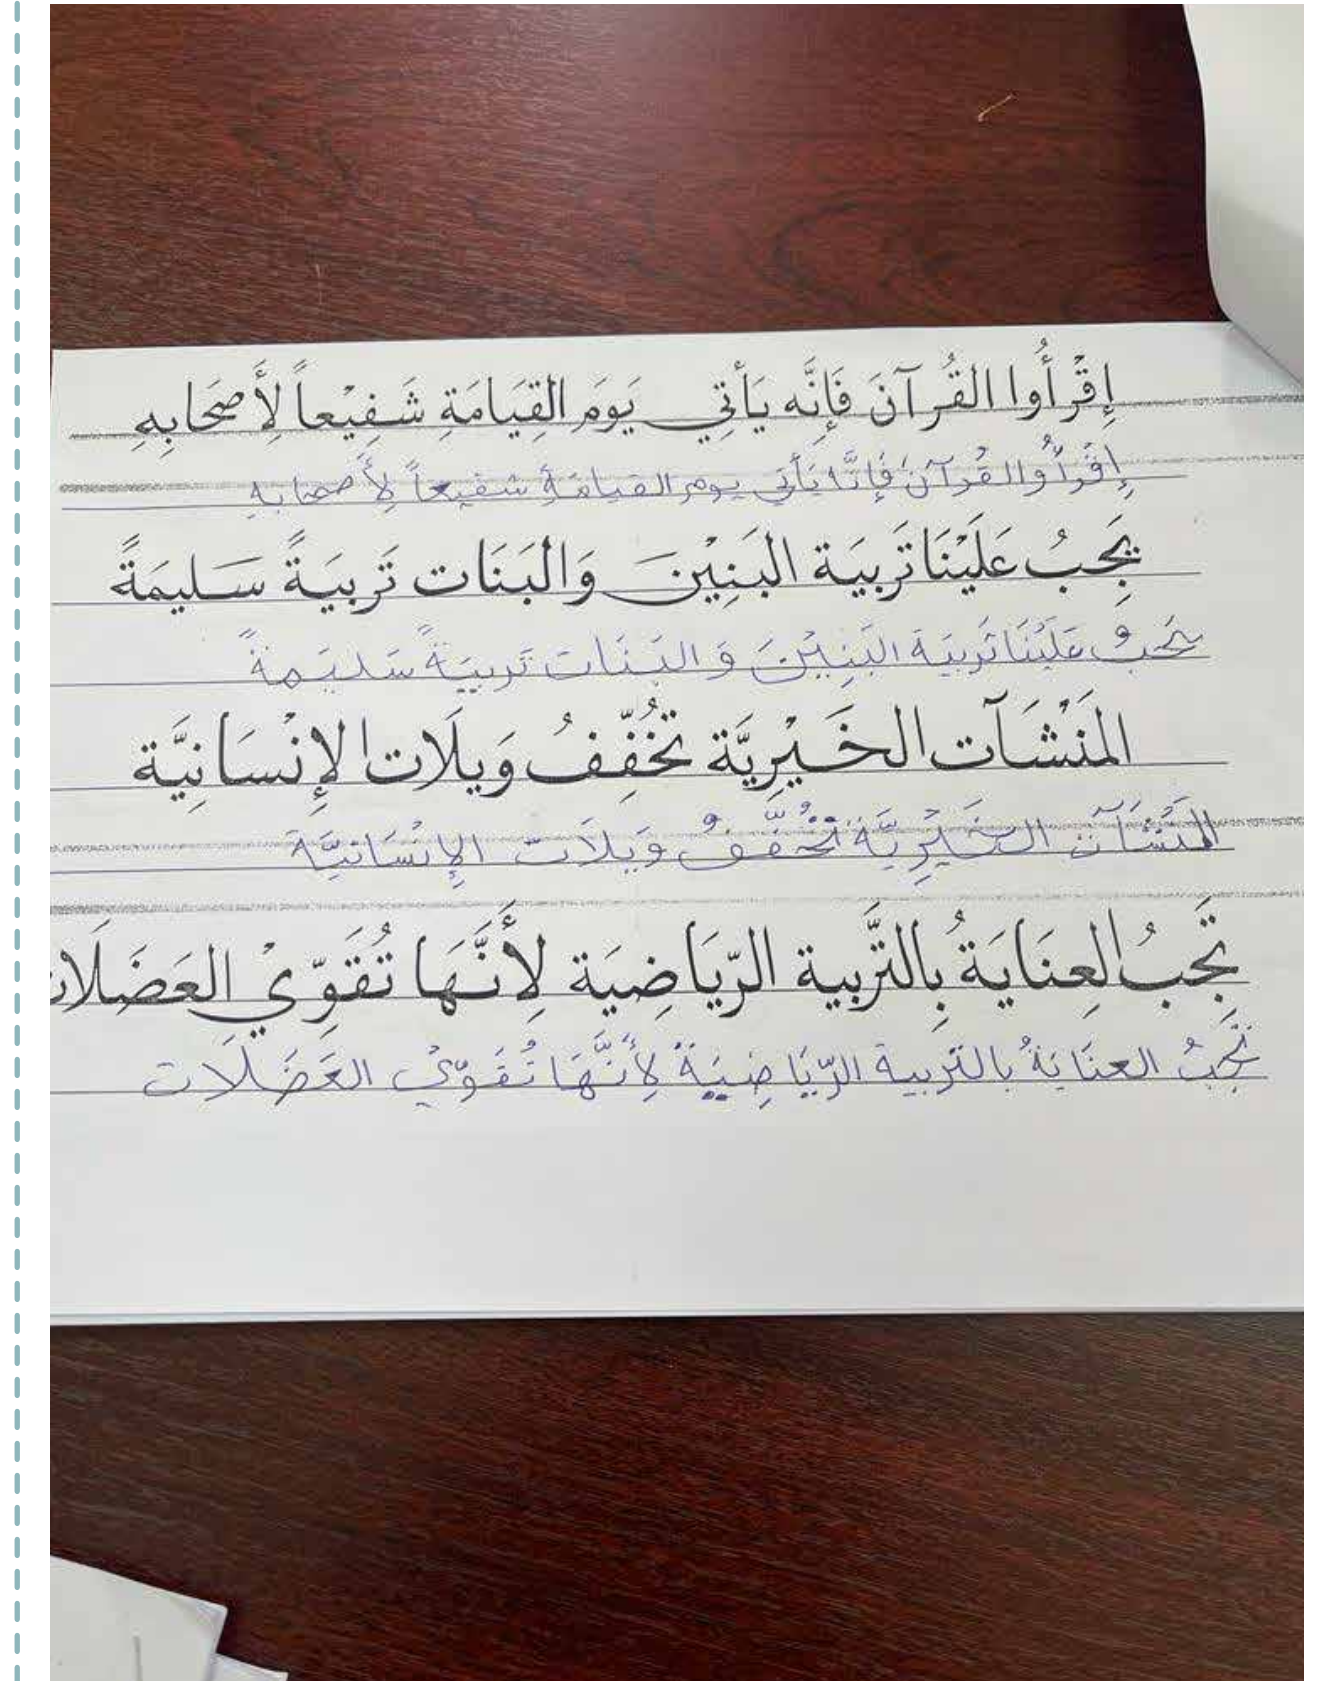 إِقْرَأُوا القُرآنَ فَإِنَّه يَأتِي يَومَ القِيَامَةِ شَفِيْعاً لِأَصحَابِهِ
إِقْرَأُوالقُرآنَ فَإِنَّه يَأتي يومَ القيامَةِ شفيعاً لِأَصحابه
يَجِبُ عَلَيْنَا تَربيَة البَنِيْنَ وَالبَنَات تَربيَةً سَليمَةً
يَجِبُ عَلَيْنَا تَربيَة البَنِيْنَ وَ البَنَات تَربيَةً سَليمَةً
المَنْشَآت الخَيْرِيَّة تُخَفِّفُ وَيلَات الإِنْسَانِيَّة
المَنْشَآت الخَيْرِيَّة تُخَفِّفُ وَيلَات الإِنْسَانيَّة
تَجِبُ العِنَايَةُ بِالتَّربية الرّيَاضِيَة لِأَنَّهَا تُقَوِّيْ العَضَلَات
تَجِبُ العنَايَةُ بالتَّربية الرّيَاضِيَةُ لِأَنَّهَا تُقَوِّيْ العَضَلَات